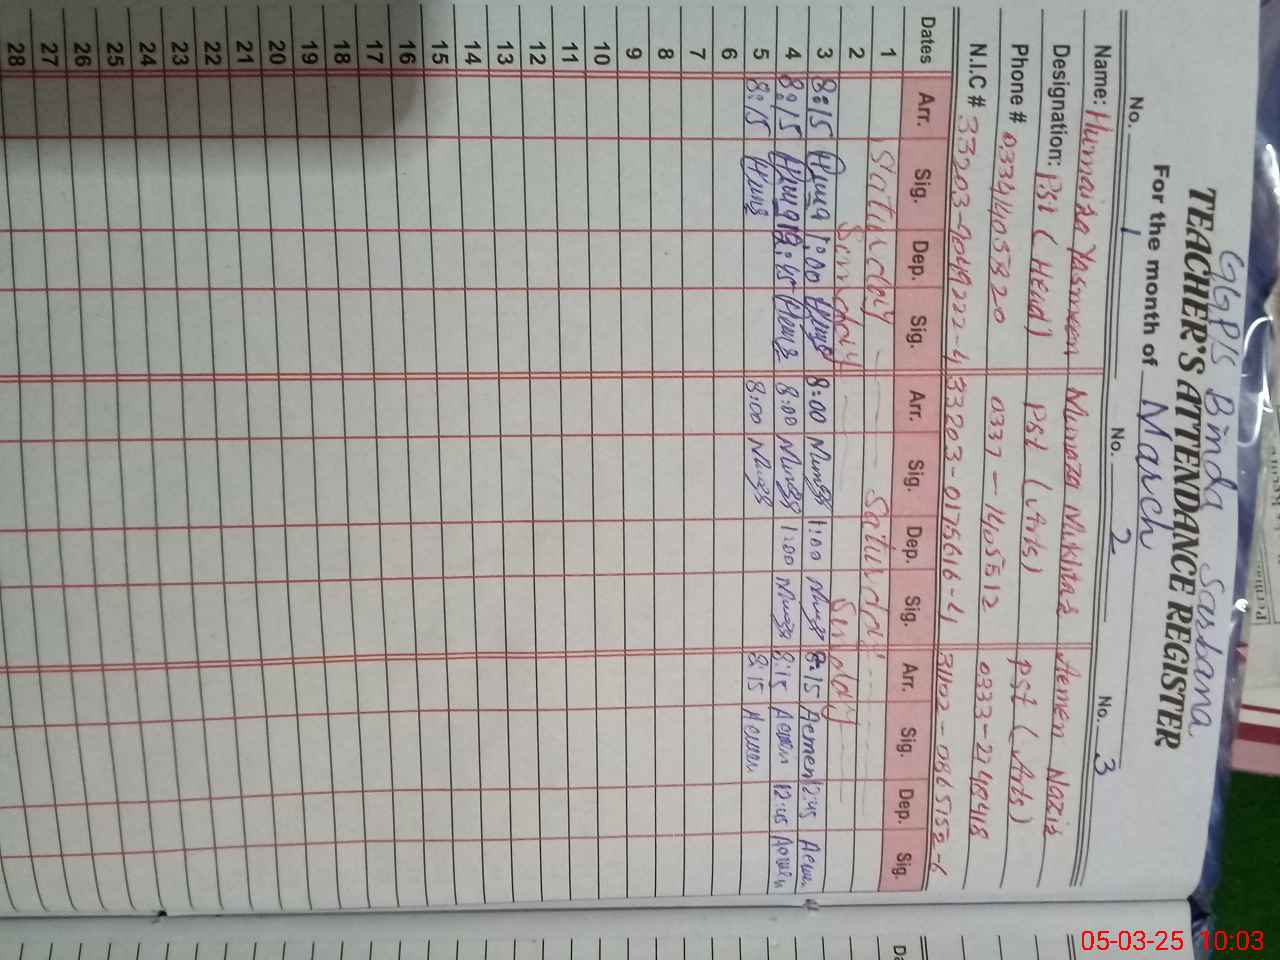 GGP/S Binda Sarbana
TEACHER'S ATTENDANCE REGISTER
For the month of March
No. 1 No. 2 No. 3
Name: Humaira Yasmeen Mumaza Mukhtar Aemen Nazir
Designation: PST (Head) PST (Arts) PST (Arts)
Phone # 0337-1405512
N.I.C #
Dates Arr. Sig. Dep. Sig. Arr. Sig. Dep. Sig. Arr. Sig. Dep. Sig.
1 Saturday Saturday
2 Sunday Sunday
3 8:15 1:00 8:00 1:00 8:15 Aemen 12:45 Aemen
4 8:15 12:45 8:00 1:00 8:15 Aemen 12:45 Aemen
5 8:15 8:00 8:15 Aemen
6
7
8
9
10
11
12
13
14
15
16
17
18
19
20
21
22
23
24
25
26
27
28
05-03-25 10:03